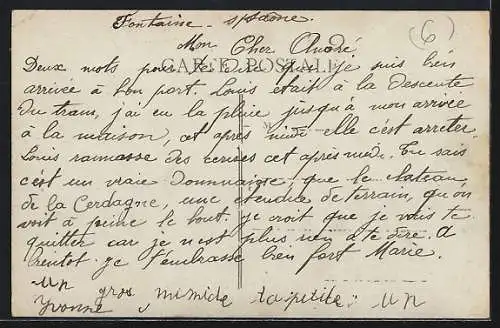 Fontaine - s/saône.
(6)
Mon Cher André,
CARTE POSTALE
Deux mots pour te dire que je suis bien
arrivée à bon port. Louis était à la descente
du tram, j'ai eu la pluie jusqu'à mon arrivée
à la maison, et après midi elle c'est arreter
Louis ramasse des cerises cet après mide. Tu sais
c'est un vraie Domaine, que le chateau
de la Cerdagne, une étendue de terrain, qu'on
voit à peine le bout. je croit que je vais te
quitter car je n'est plus rien a te dire. A
bientot. je t'embrasse bien fort Marie.
un gros mimide ta petite: un
Yvonne